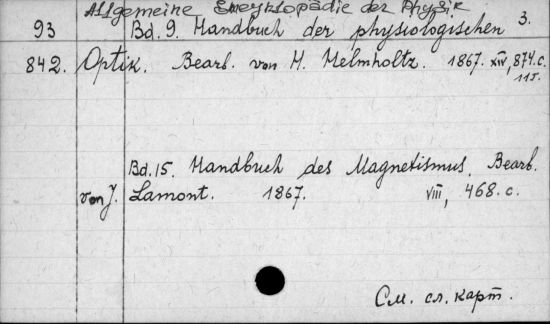 Allgemeine Encyklopädie der Physik
93 Bd. 9. Handbuch der physiologischen 3.
842. Optik. Bearb. von H. Helmholtz. 1867. XIV, 874.c.
11 J.
Bd. 15. Handbuch des Magnetismus. Bearb.
von J. Lamont. 1867. VIII, 468. c.
См. сл. карт.